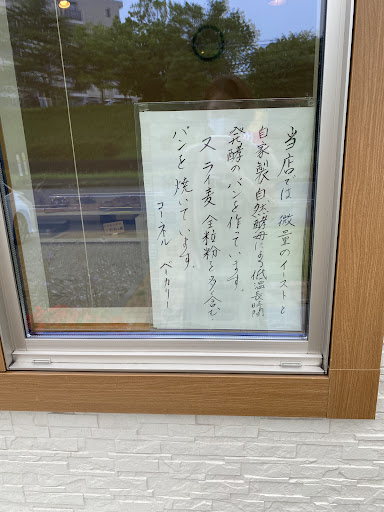 当店では 微量のイーストと
自家製自然酵母による低温長時間
発酵のパンを作っています。
又ライ麦 全粒粉を多く含む
パンを焼いています。
コーネル ベーカリー